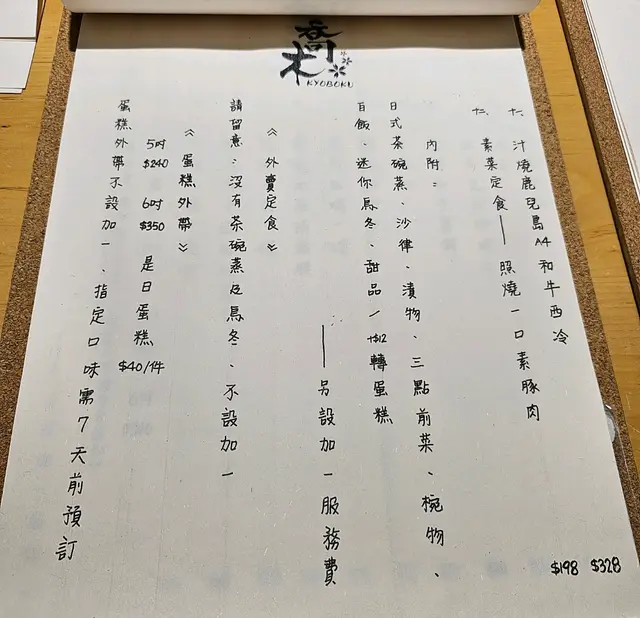 喬木
KYOBOKU
十、汁燒鹿兒島A4和牛西冷 $328
十二、素菜定食——照燒一口素豚肉 $198
內附：
日式茶碗蒸、沙律、漬物、三點前菜、椀物、
白飯、迷你烏冬、甜品／+$12轉蛋糕
——另設加一服務費
《外賣定食》
請留意：沒有茶碗蒸及烏冬、不設加一
《蛋糕外帶》
5吋 $240 6吋 $350 是日蛋糕 $40/件
蛋糕外帶不設加一、指定口味需7天前預訂